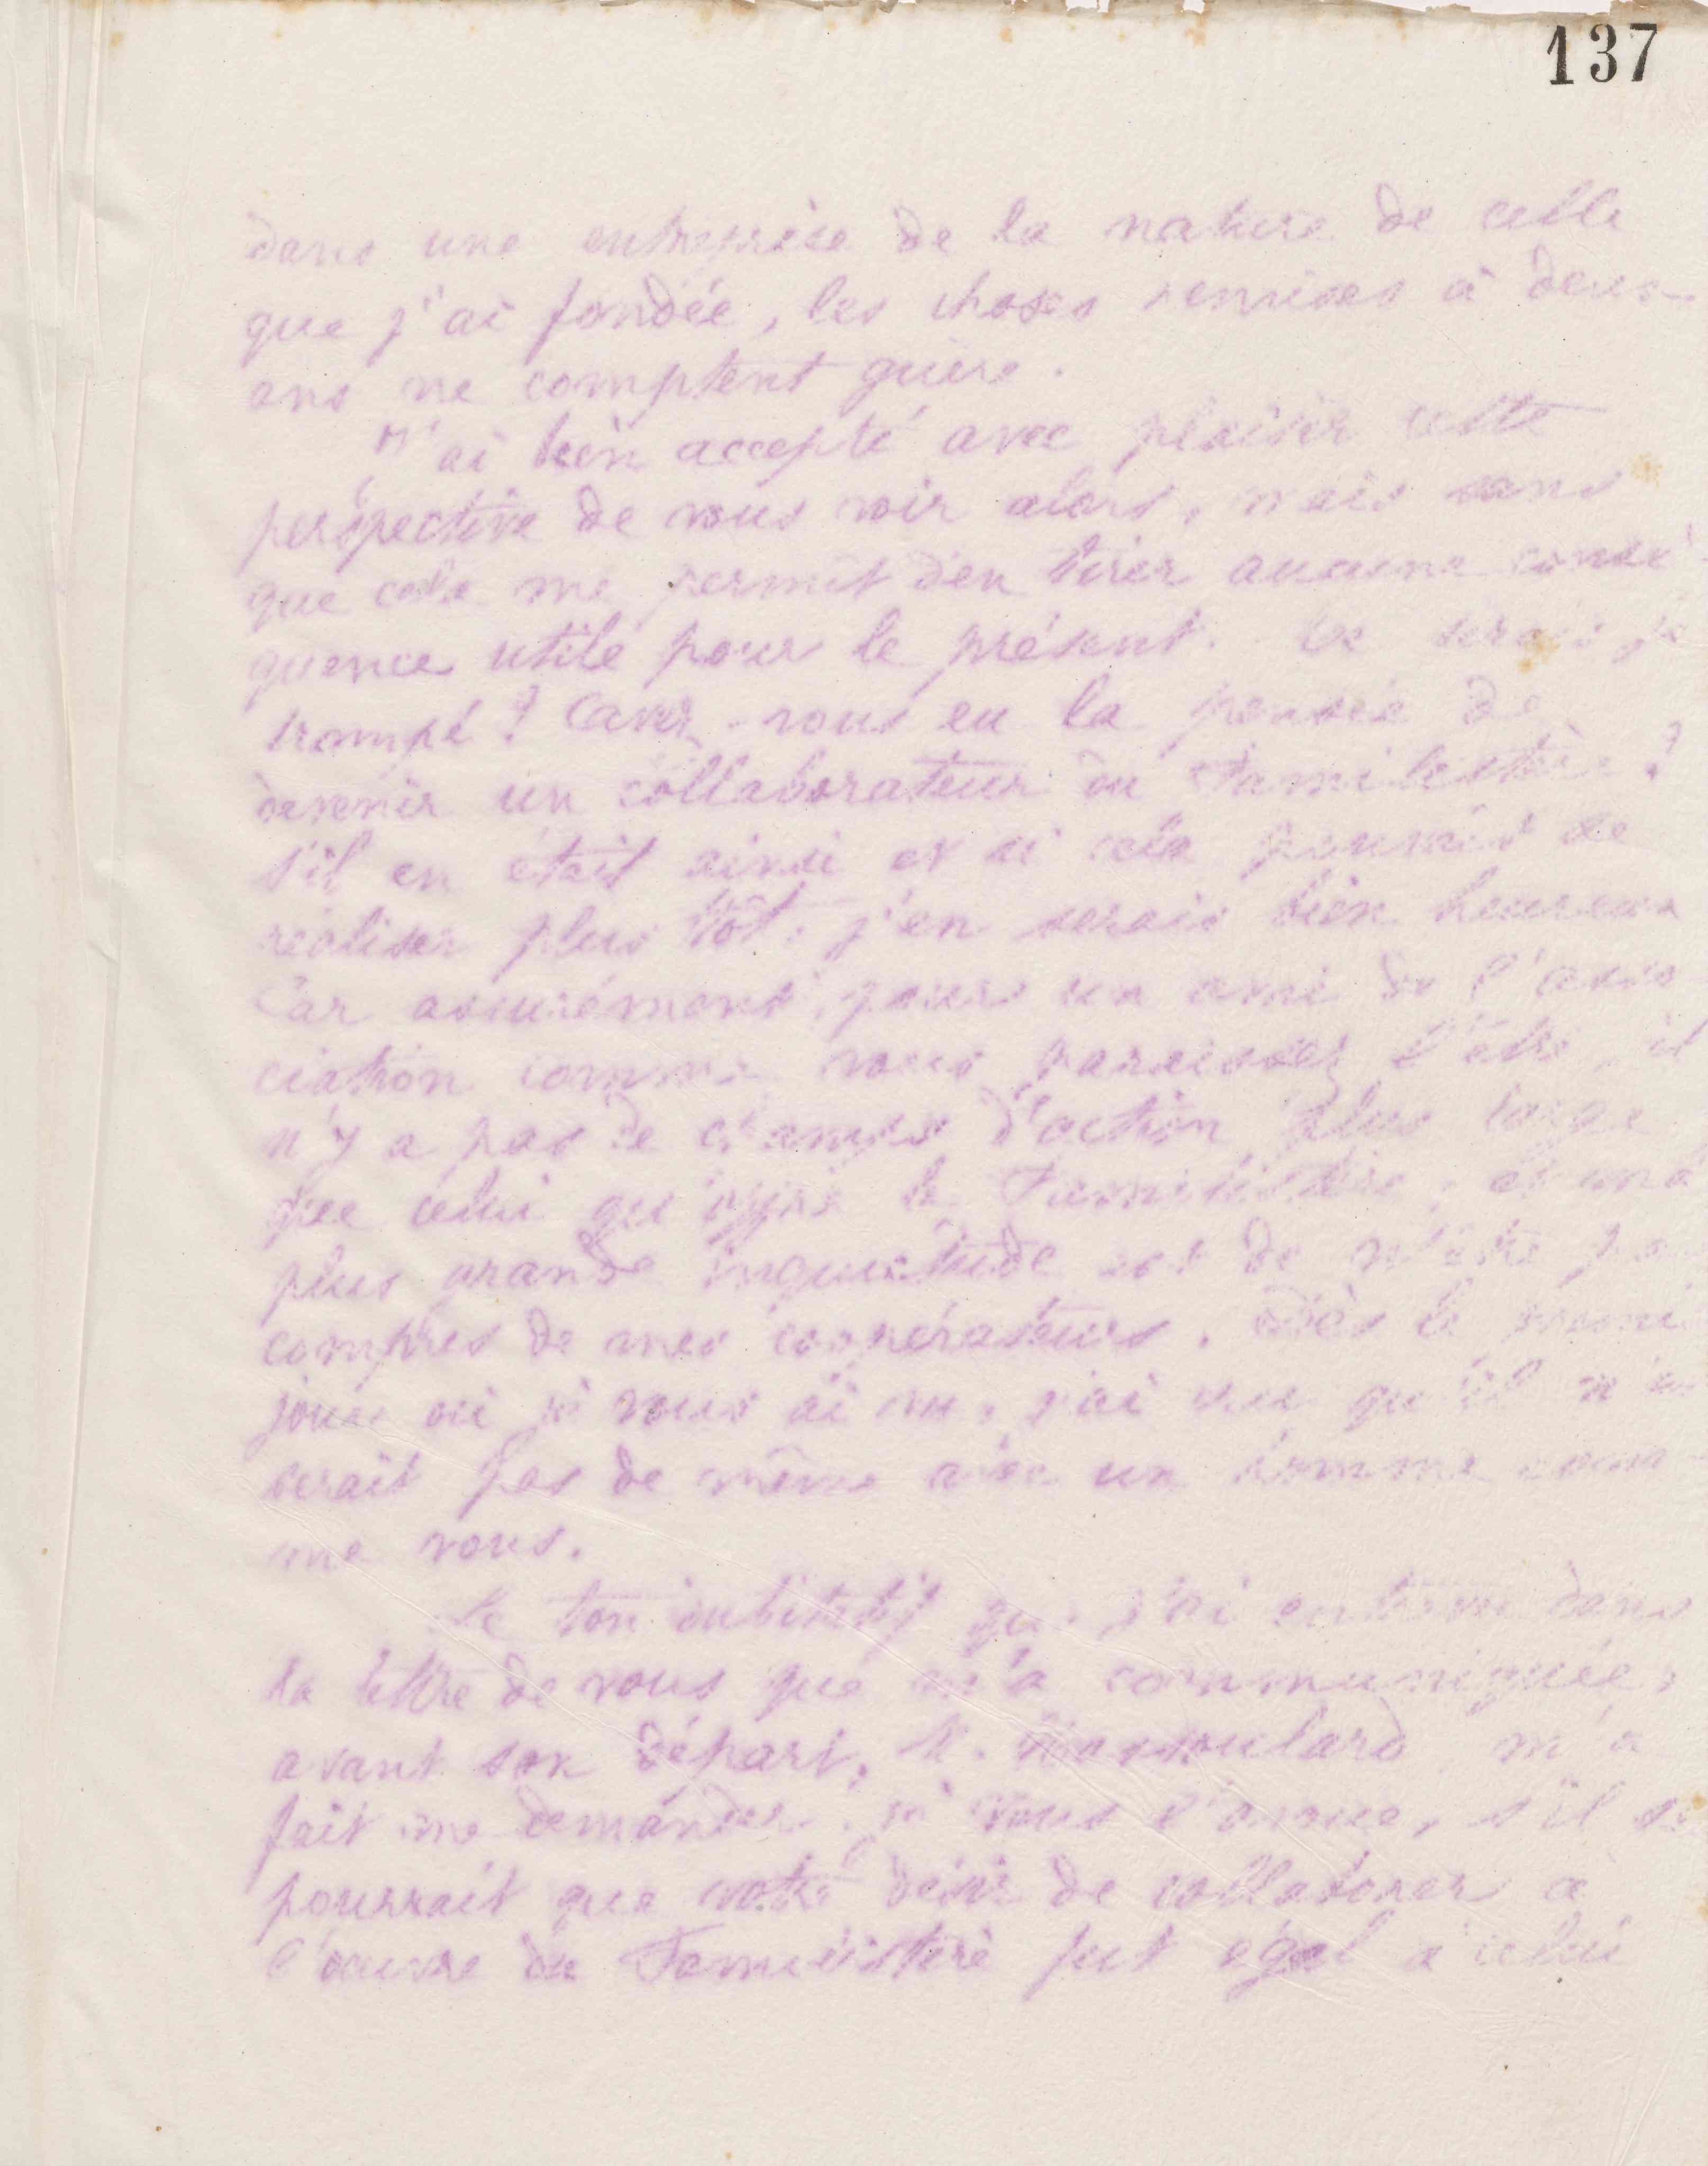 137
dans une entreprise de la nature de celle
que j'ai fondée, les choses remises à deux
ans ne comptent guère.
J'ai bien accepté avec plaisir cette
perspective de vous voir alors, mais sans
que cela me permit d'en tirer aucune consé
quence utile pour le présent. serais je
trompé ? avez-vous eu la pensée de
devenir un collaborateur du Familistère ?
S'il en était ainsi et si cela pouvait se
réaliser plus tôt, j'en serais bien heureux
Car assurément, pour un ami de l'asso
ciation comme vous paraissez l'être, il
n'y a pas de champs d'action plus large
que celui qu'offre le Familistère, et ma
plus grande inquiétude est de n'être pas
compris de mes coopérateurs. Dès le premier
jour où je vous ai vu, j'ai vu qu'il n'en
serait pas de même avec un homme com
me vous.
Le ton dubitatif que j'ai entrevu dans
la lettre de vous que m'a communiquée,
avant son départ, M. m'a
fait me demander, je vous l'avoue, s'il se
pourrait que votre désir de collaborer à
l'œuvre du Familistère fut égal à celui